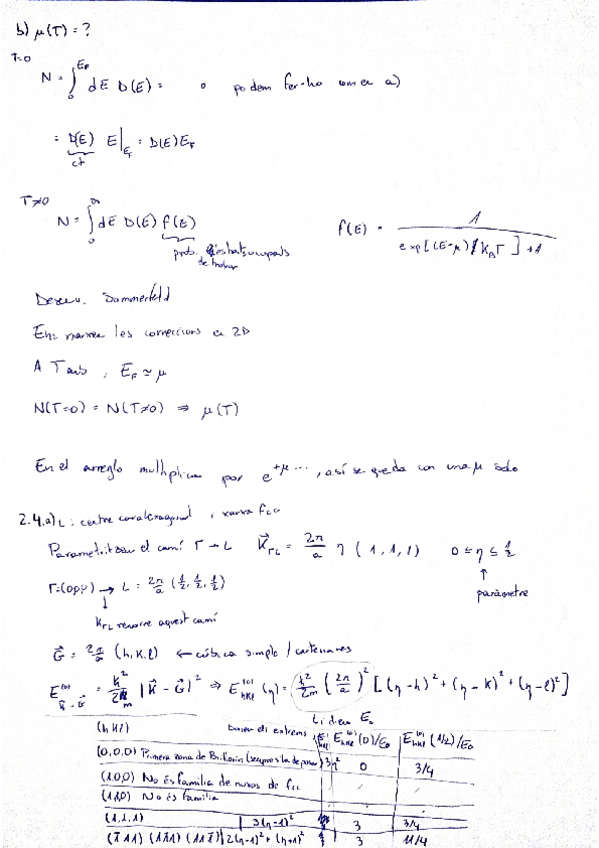 b) μ(T) = ?
T=0
N = ∫₀^{E_F} dE D(E) = podem fer-ho com a a)
= D(E) E|_{E_F} = D(E) E_F
ct
T≠0
N = ∫₀^∞ dE D(E) f(E)
f(E) = 1 / (exp[(E-μ)/K_B T] + 1)
prob. estats ocupats
de trobar
Desenv. Sommerfeld
les correccions a 2D
A T amb, E_F ≃ μ
N(T=0) = N(T≠0) ⇒ μ(T)
En el arreglo multiplica por e^{+μ...}, así se queda con una μ solo
2.4.a) L: centre cara hexagonal, xarxa fcc
Parametritzem el camí Γ → L K⃗_{ΓL} = 2π/a η (1,1,1) 0 ≤ η ≤ 1/2
↑
paràmetre
Γ=(000) → L = 2π/a (1/2, 1/2, 1/2)
↓
K_{ΓL} recorre aquest camí
G⃗ = 2π/a (h,k,l) ← cúbica simple / cartesianes
E^{(0)}_{K⃗-G⃗} = ħ²/2m |K⃗ - G⃗|² ⇒ E^{(0)}_{hkl}(η) = ħ²/2m (2π/a)² [(η-h)² + (η-k)² + (η-l)²]
Li diem E₀
(hkl) extrems E^{(0)}_{hkl}(0)/E₀ E^{(0)}_{hkl}(1/2)/E₀
(0,0,0) Primera zona de Brillouin 3η² 0 3/4
(1,0,0) No és família de nusos de fcc
(1,1,0) No és família
(1,1,1) 3(η-1)² 3 3/4
(1̄11) (11̄1) (111̄) 2(η-1)² + (η+1)² 3 11/4